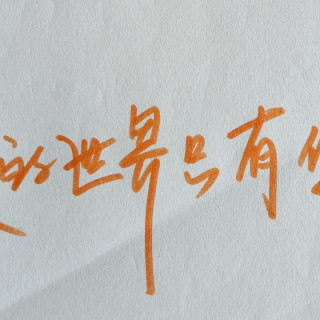 的世界只有